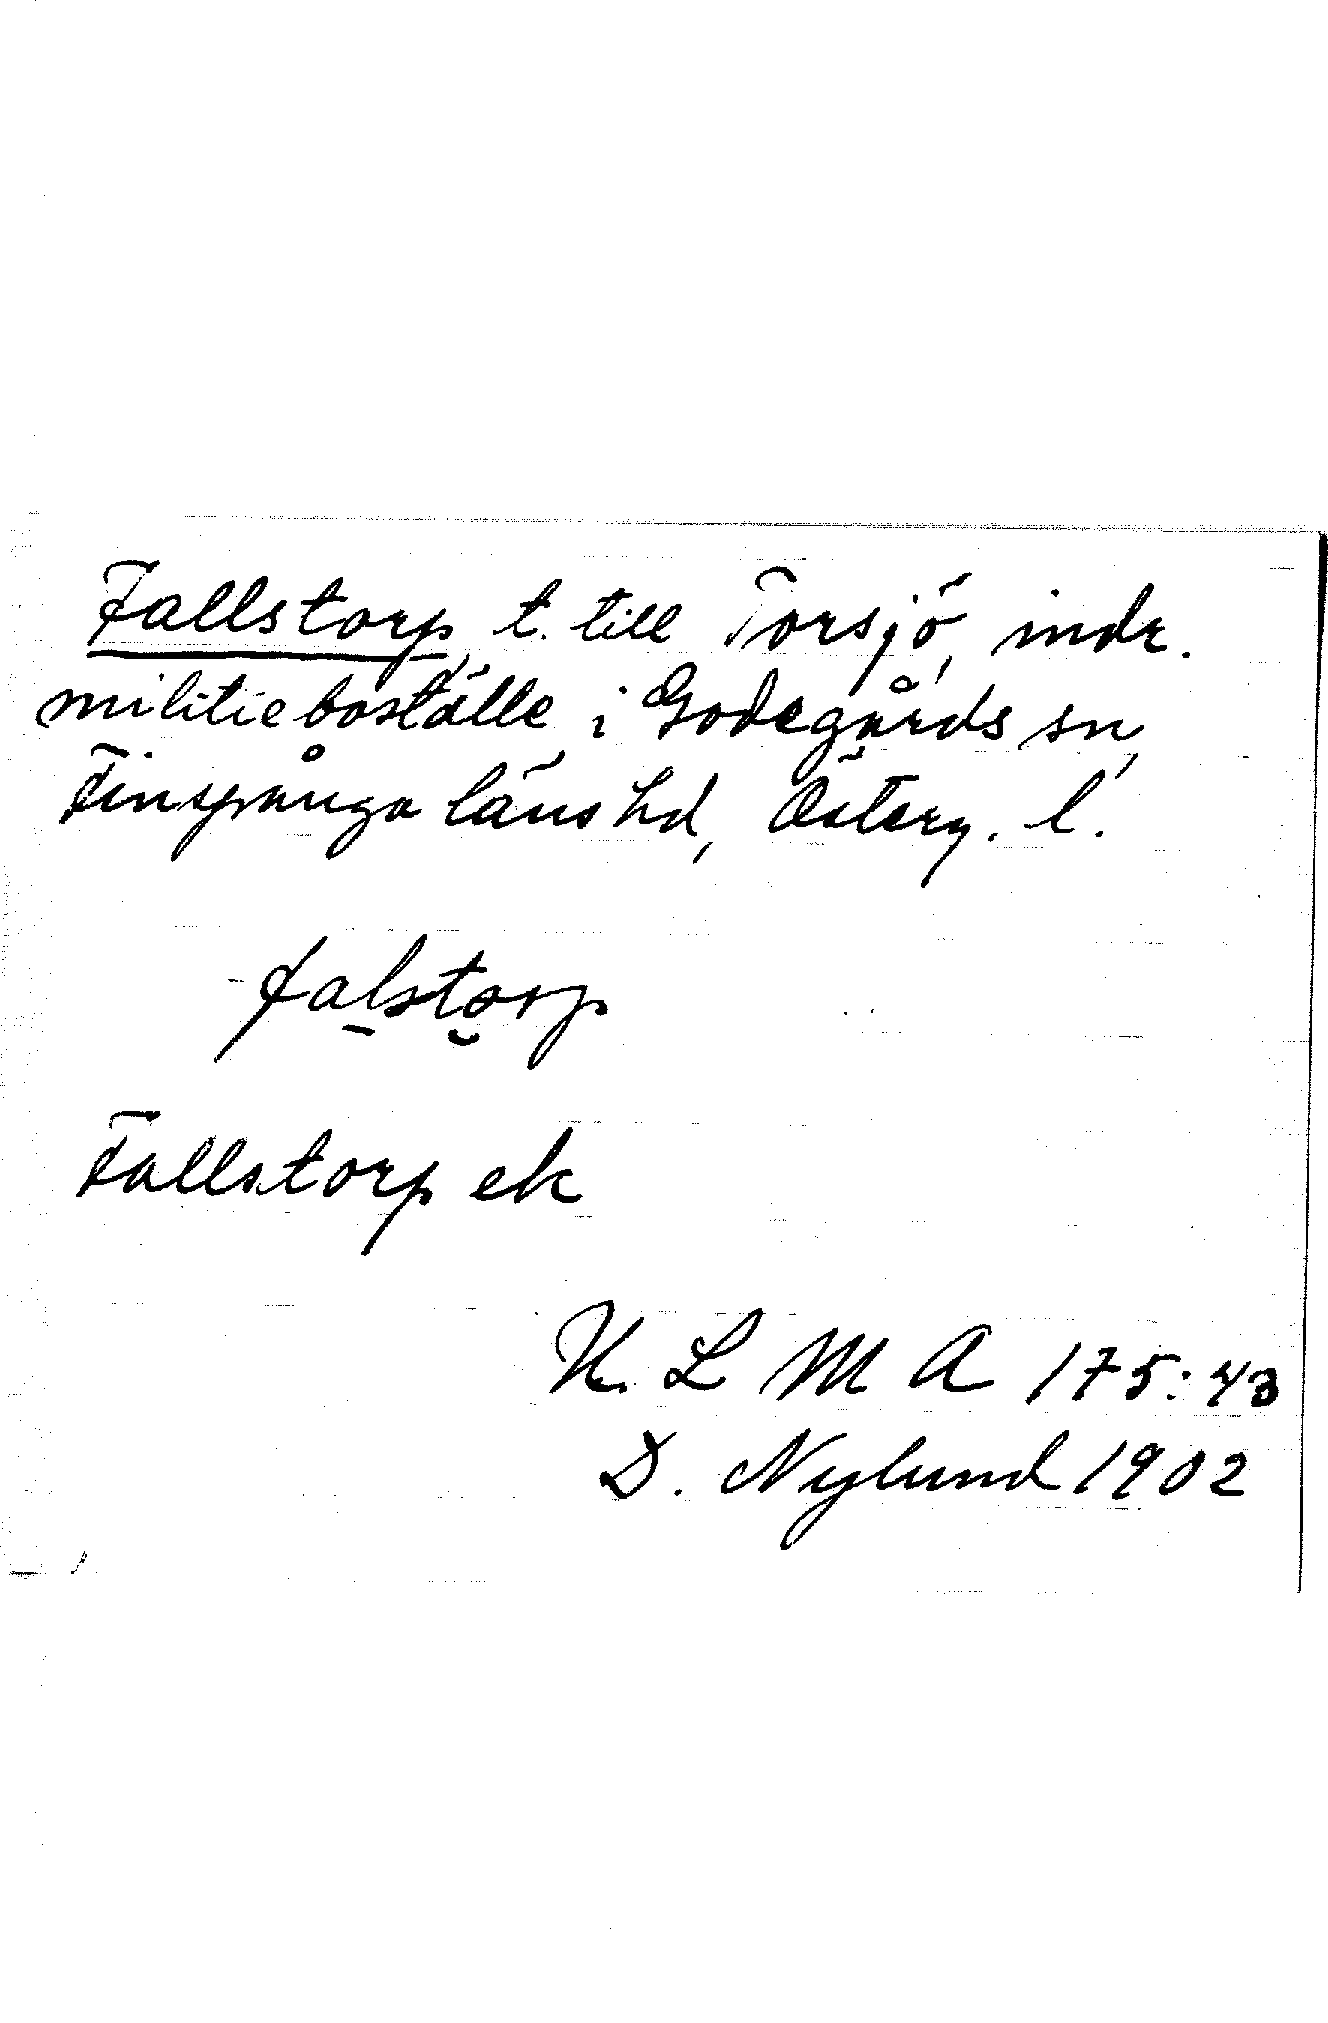 Fallstorp, t. till Torsjö, indr.
militieboställe i Godegårds sn,
Finspånga läns hd, Österg. l.
falstorp
Fallstorp ek
K. L M A 175:43
D. Nylund 1902